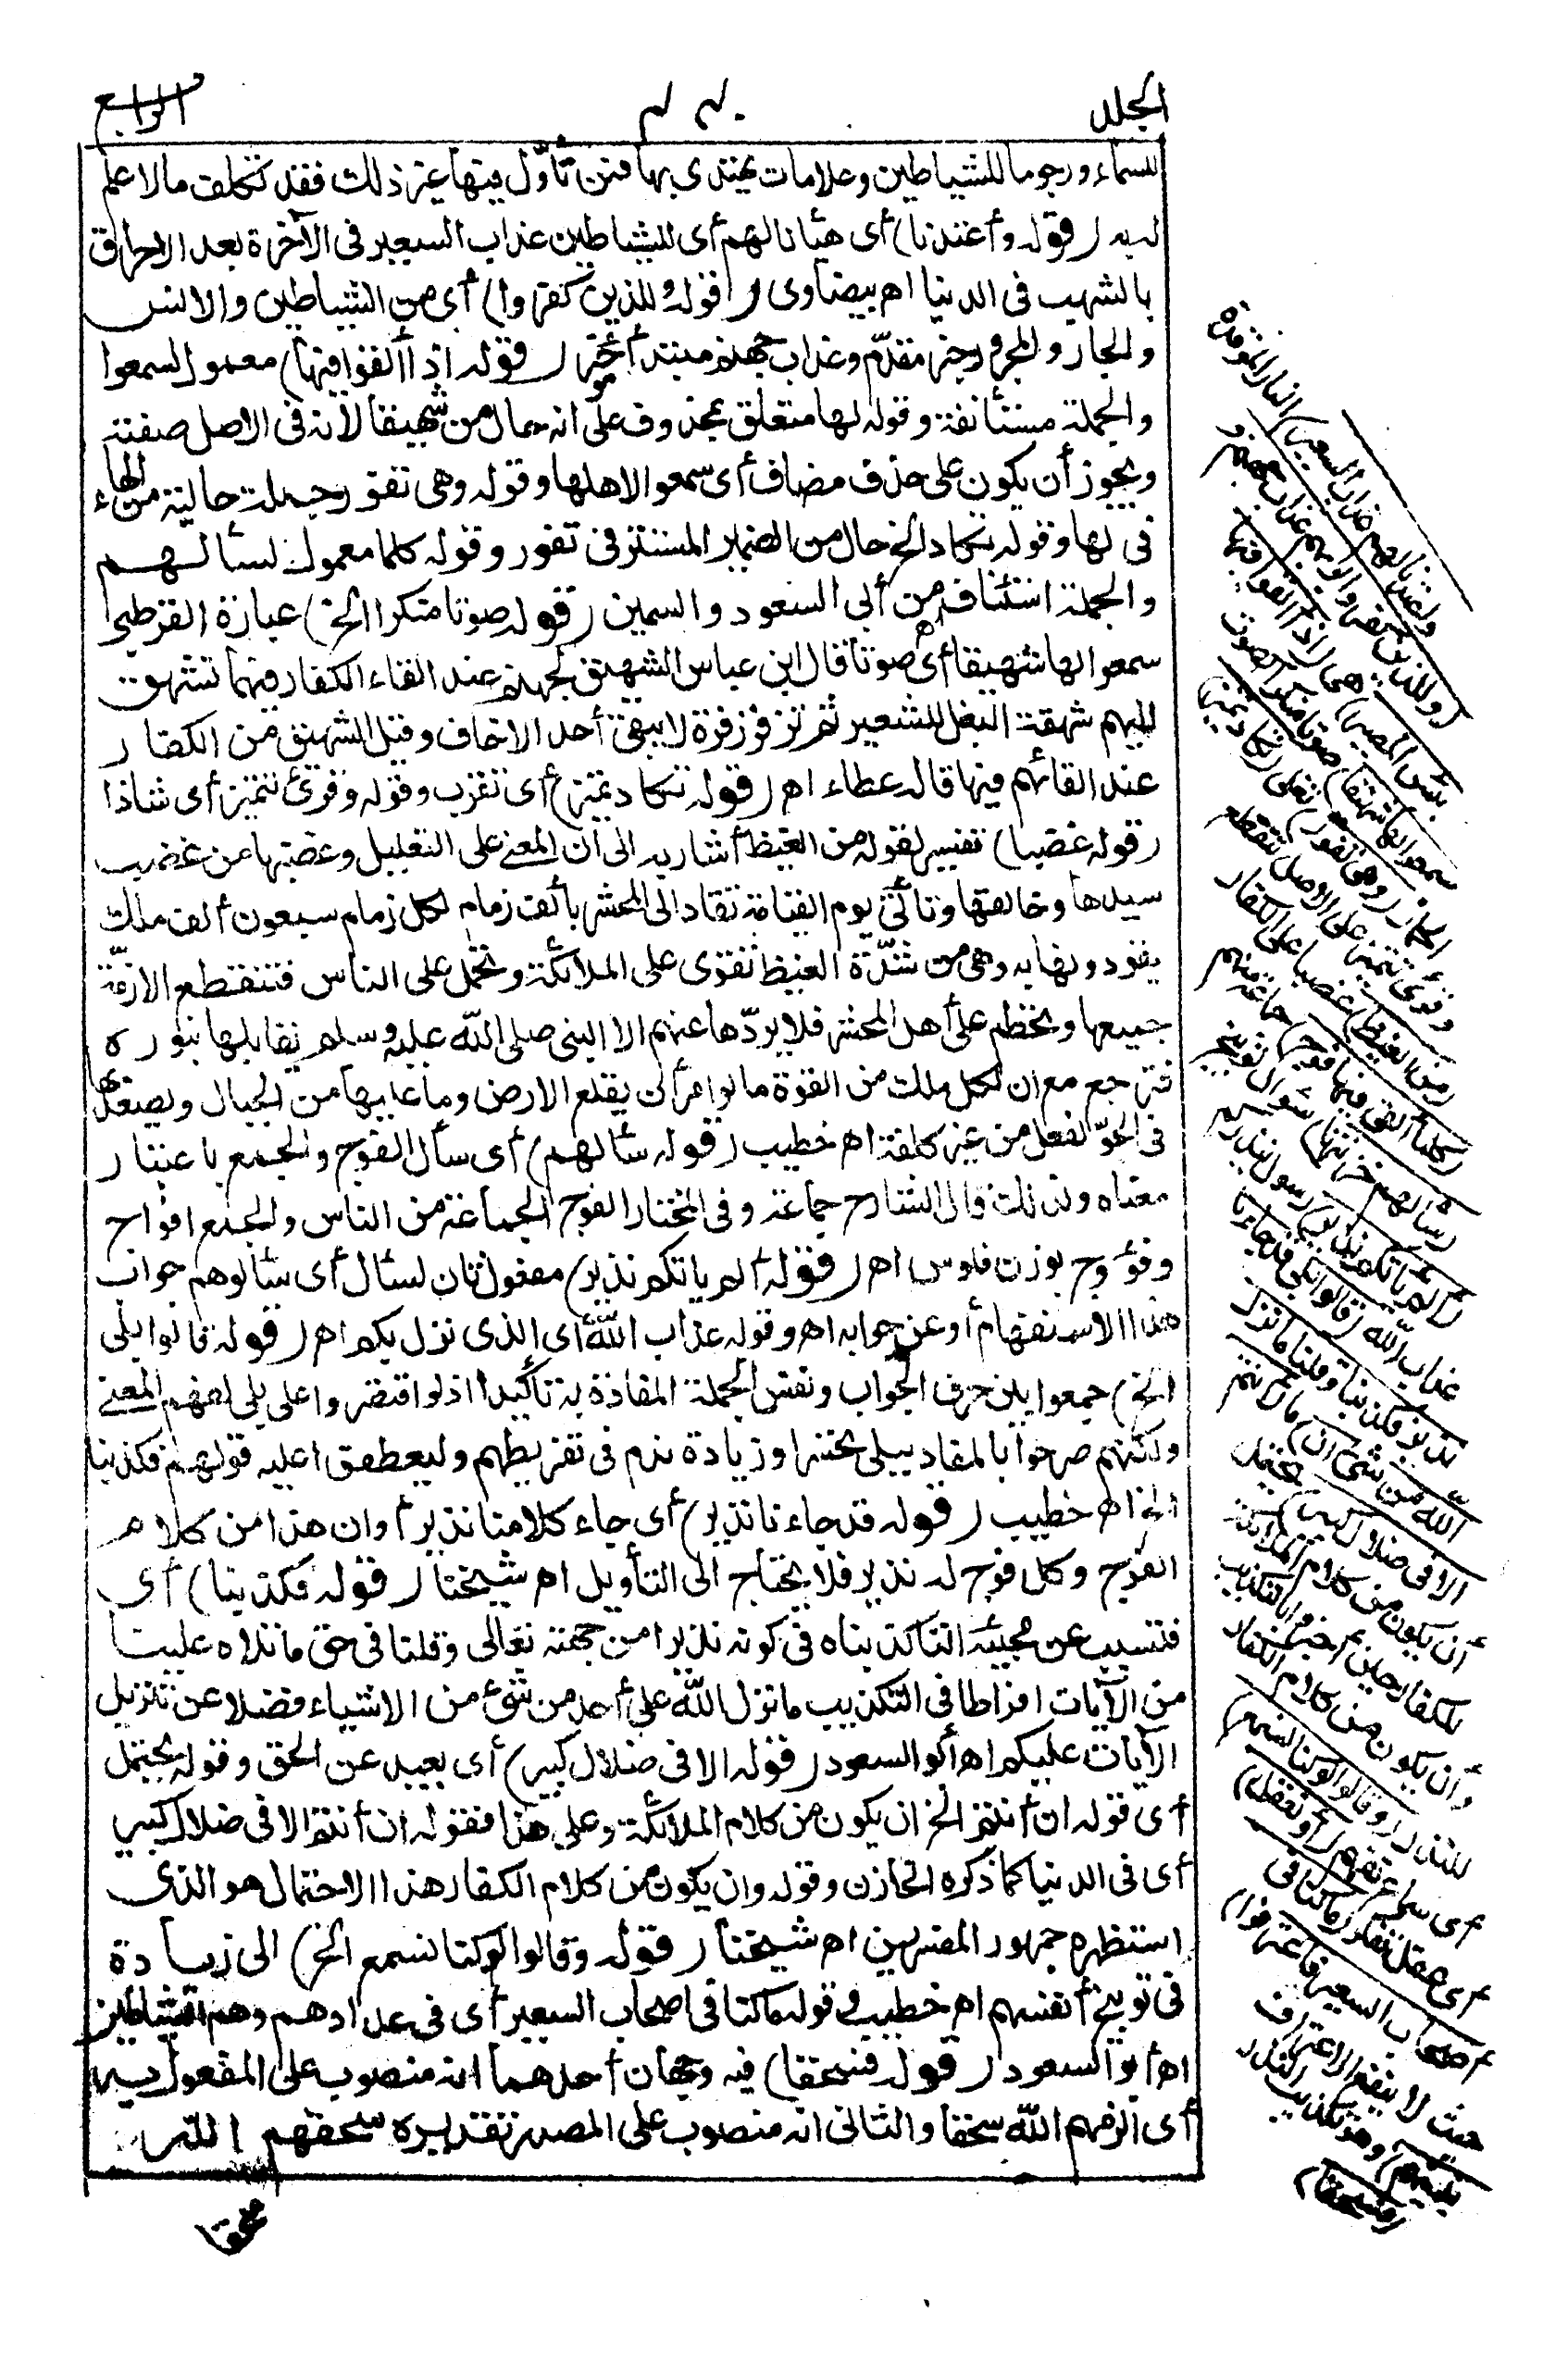 الجلد
الرابع
للسماء ورجوما للشياطين وعلامات يهتدى بها فمن تأوّل فيها غير ذلك فقد تكلف مالا علم
له به (قوله وأعتدنا) أى هيأنا لهم أى للشياطين عذاب السعير فى الآخرة بعد الاحراق
بالشهب فى الدنيا اهم بيضاوى (قوله وللذين كفروا) أى من الشياطين والانس
والجار والمجرور خبر مقدّم وعذاب جهنم مبتدأ مؤخر (قوله اذا ألقوا فيها) معمول لسمعوا
والجملة مستأنفة وقوله لها متعلق بمحذوف على انه حال من شهيقا لانه فى الاصل صفته
ويجوز أن يكون على حذف مضاف أى سمعوا لاهلها وقوله وهى تفور جملة حالية من الهاء
فى لها وقوله تكاد الخ حال من الضمير المستتر فى تفور وقوله كلما معمول لسألهم
والجملة استئناف اهم من أبى السعود والسمين (قوله صوتا منكرا الخ) عبارة القرطبى
سمعوا لها شهيقا أى صوتا قال ابن عباس الشهيق لجهنم عند القاء الكفار فيها تشهق
اليهم شهقة البغل للشعير ثم تزفر زفرة لا يبقى أحد الا خاف وقيل الشهيق من الكفار
عند القائهم فيها قاله عطاء اهم (قوله تكاد تميز) أى تقرب وقوله وقرئ تتميز أى شاذا
(قوله غضبا) تفسير لقوله من الغيظ أشار به الى أن المعنى على التعليل وغضبها من غضب
سيدها وخالقها وتأتى يوم القيامة تقاد الى المحشر بألف زمام لكل زمام سبعون ألف ملك
يقودونها به وهى من شدّة الغيظ تقوى على الملائكة وتحمل على الناس فتنقطع الازمّة
جميعها وتخطم على أهل المحشر فلا يردّها عنهم الا النبى صلى الله عليه وسلم يقابلها بنوره
فترجع مع ان لكل ملك من القوة ما لو امر أن يقلع الارض وما عليها من الجبال ويصعد بها
فى الجوّ لفعل من غير كلفة اهم خطيب (قوله سألهم) أى سأل الفوج والجمع باعتبار
معناه ولذلك قال الشارح جماعة وفى المختار الفوج الجماعة من الناس والجمع افواج
وفؤوج بوزن فلوس اهم (قوله ألم يأتكم نذير) مفعول ثان لسأل أى سألوهم جواب
هذا الاستفهام أو عن جوابه اهم وقوله عذاب الله أى الذى نزل بكم اهم (قوله قالوا بلى
الخ) جمعوا بين حرف الجواب ونفس الجملة المفادة به تأكيدا اذ لو اقتصروا على بلى لفهم المعنى
ولكنهم صرحوا بالمفاد ببلى تحسرا وزيادة ندم فى تفريطهم وليعطفوا عليه قولهم فكذبنا
الخ اهم خطيب (قوله قد جاءنا نذير) أى جاء كلا منا نذير أو ان هذا من كلام
الفوج وكل فوج له نذير فلا يحتاج الى التأويل اهم شيخنا (قوله فكذبنا) أى
فتسبب عن مجيئه اننا كذبناه فى كونه نذيرا من جهته تعالى وقلنا فى حق ما تلاه علينا
من الآيات افراطا فى التكذيب ما نزل الله على أحد من شئ من الاشياء فضلا عن تنزيل
الآيات عليكم اهم أبو السعود (قوله الا فى ضلال كبير) أى بعيد عن الحق وقوله يحتمل
أى قوله ان أنتم الخ ان يكون من كلام الملائكة وعلى هذا فقوله ان أنتم الا فى ضلال كبير
أى فى الدنيا كما ذكره الخازن وقوله وان يكون من كلام الكفار هذا الاحتمال هو الذى
استظهره جمهور المفسرين اهم شيخنا (قوله وقالوا لو كنا نسمع الخ) الى زيادة
فى توبيخ أنفسهم اهم خطيب وقوله ما كنا فى اصحاب السعير أى فى عدادهم وهم الشياطين
اهم أبو السعود (قوله فسحقا) فيه وجهان أحدهما انه منصوب على المفعول به
أى الزمهم الله سحقا والثانى انه منصوب على المصدر تقديره سحقهم الله
سحقا
النار الموقدة
(وأعتدنا لهم عذاب السعير)
(وللذين كفروا بربهم عذاب جهنم و
بئس المصير) هى (اذا ألقوا فيها
سمعوا لها شهيقا) صوتا منكرا كصوت
الحمار (وهى تفور) تغلى (تكاد تميز)
وقرئ تتميز على الاصل تتقطع
(من الغيظ) غضبا على الكفار
(كلما ألقى فيها فوج) جماعة منهم
(سألهم خزنتها) سؤال توبيخ
(ألم يأتكم نذير) رسول ينذركم
عذاب الله (قالوا بلى قد جاءنا
نذير فكذبنا وقلنا ما نزل
الله من شئ ان) ما (أنتم
الا فى ضلال كبير) يحتمل
أن يكون من كلام الملائكة
للكفار حين أخبروا بالتكذيب
وأن يكون من كلام الكفار
للنذر (وقالوا لو كنا نسمع)
أى سماع تفهم (أو نعقل)
أى عقل تفكر (ما كنا فى
أصحاب السعير فاعترفوا)
حيث لا ينفع الاعتراف
بذنبهم) وهو تكذيب النذر
(فسحقا)